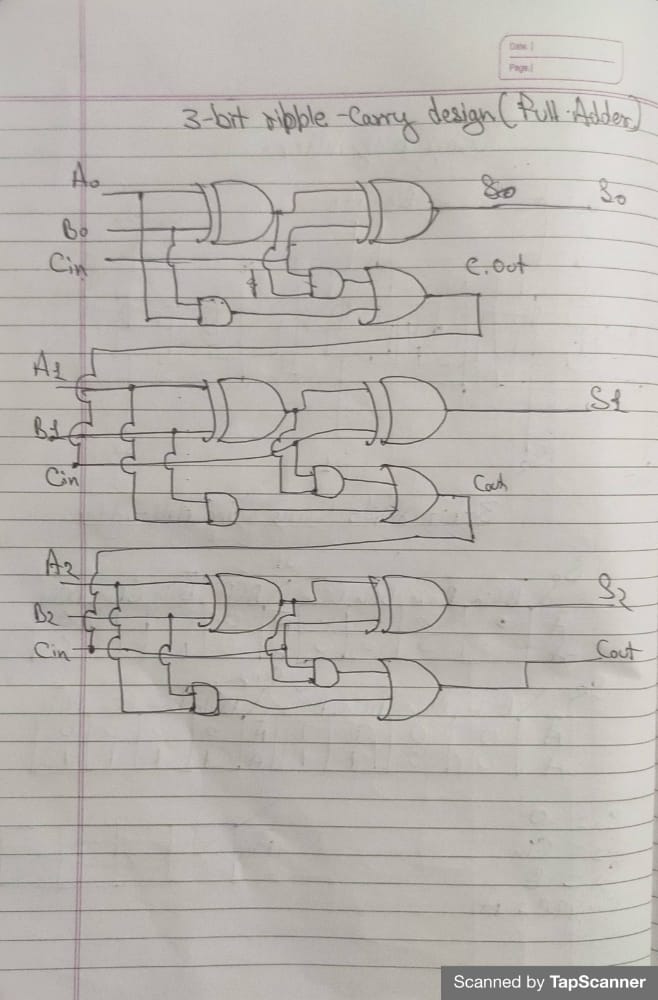 Date. |
Page. |
3-bit ripple-Carry design (Full-Adder)
A0
So S0
B0
Cin
C.out
A1
S1
B1
Cin
Cout
A2
S2
B2
Cin
Cout
Scanned by TapScanner